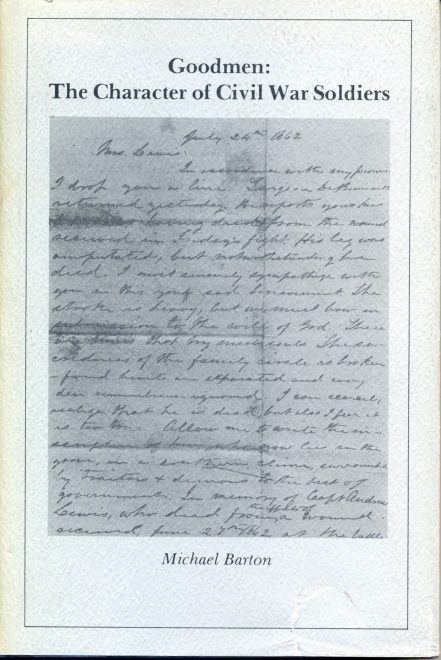 Goodmen:
The Character of Civil War Soldiers
July 24th 1862
Mrs. Lewis
In accordance with my promise
I drop you a line. Surgeon
returned yesterday he reports your
having died from the wound
received in Friday's fight. His leg was
amputated, but notwithstanding he
died. I most sincerely sympathize with
you in this your sad bereavement The
stroke is heavy, but we must bow in
submission to the will of God. There
that
of the family circle is broken
fond hearts are separated and
dear I can scarcely
realize that he is dead, but alas I fear it
is too true. Allow me to write the in
scription of who now lies in the
grave, in a clime, surrounded
by Traitors & to the best of
government. In memory of Capt Andrew
Lewis, who died from the effects of a wound
received, June 27th 1862 at the battle
Michael Barton